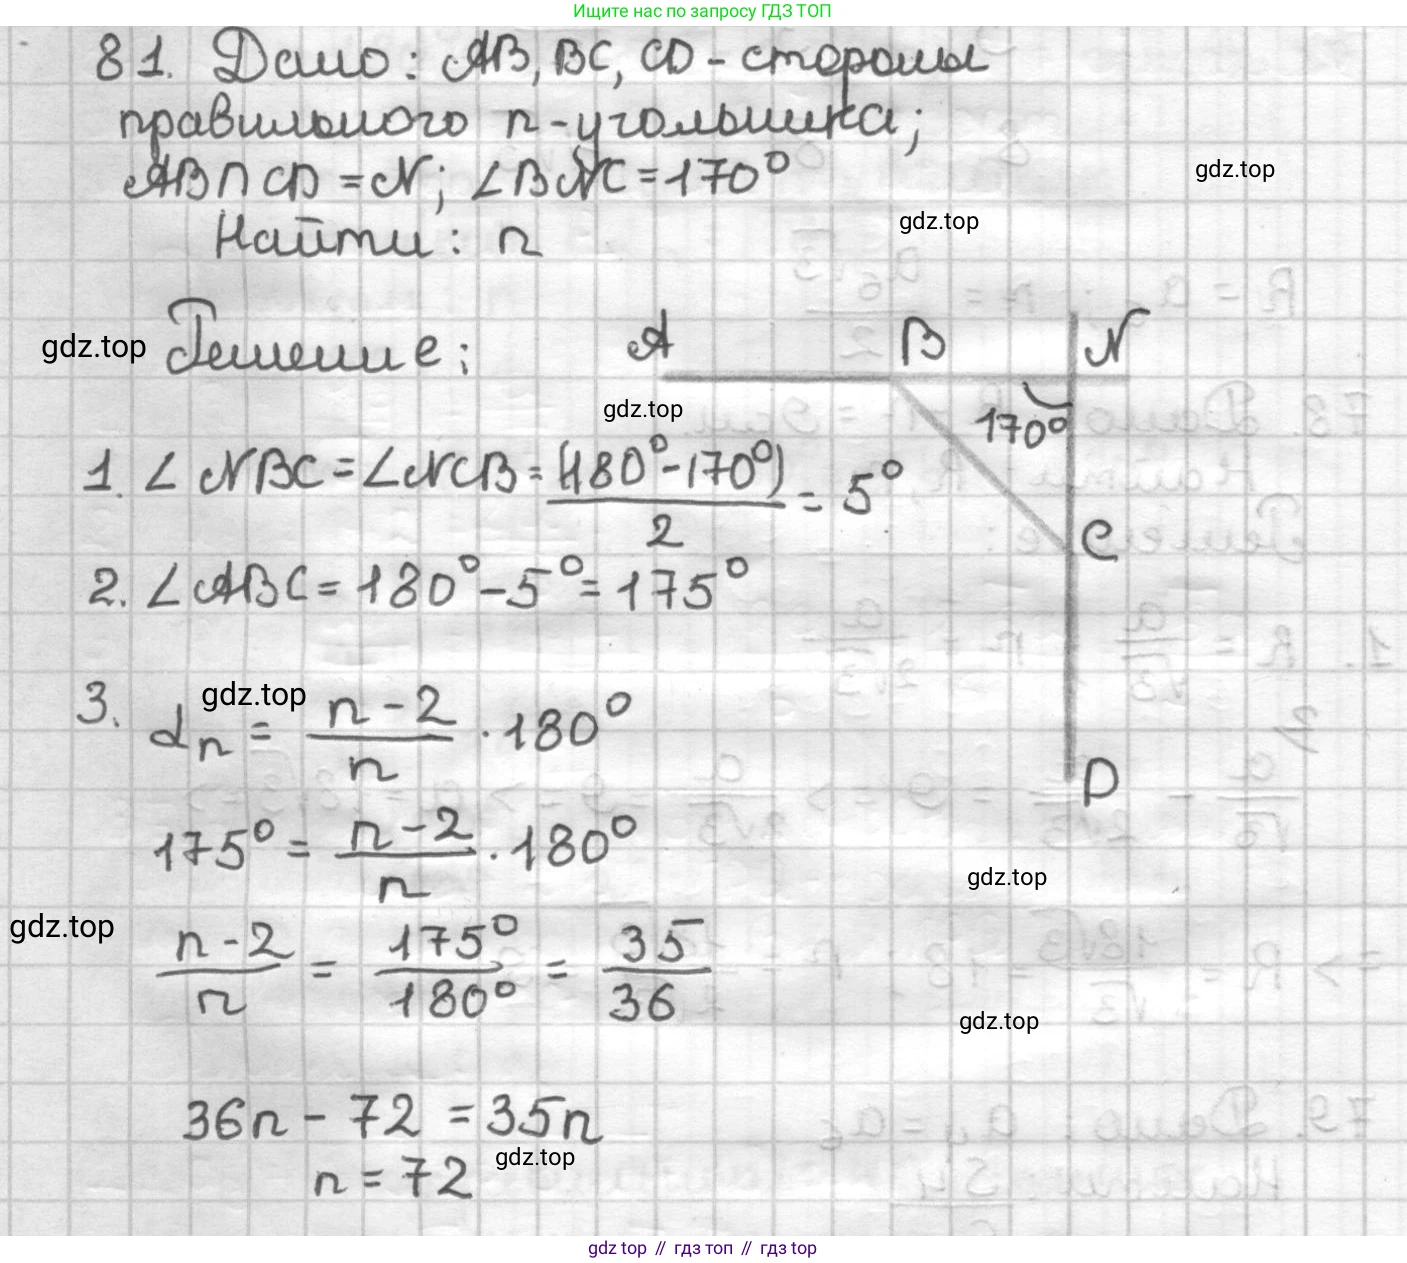 Ищите нас по запросу ГДЗ ТОП
81. Дано: AB, BC, CD - стороны
правильного n-угольника;
AB∩CD = N; ∠BNC = 170°
gdz.top
gdz.top
Найти: n
gdz.top
Решение:
A B N
gdz.top
170°
1. ∠NBC = ∠NCB = (180° - 170°) / 2 = 5°
C
2. ∠ABC = 180° - 5° = 175°
3. αn = (n - 2) / n · 180°
gdz.top
D
175° = (n - 2) / n · 180°
gdz.top
gdz.top
(n - 2) / n = 175° / 180° = 35 / 36
gdz.top
36n - 72 = 35n
gdz.top
n = 72
gdz top // гдз топ // гдз top